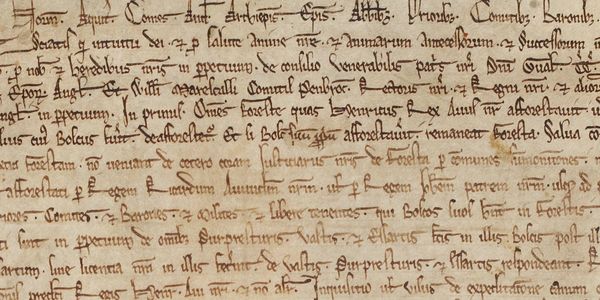 Norm. Aquit. Comes And. Archiepis. Epis. Abbibz. Prioribz. Comitibz. Baronibz.
Sciatis q intuitu dei. et p salute anime nre. et animarum antecessorum. et Successorum
p nob et heredibus nris in perpetuum. de consilio venerabilis patris nri Dni Gual.
Epor. Angl. Et Willi Marescalli Comitis Penbroc. Rectoris nri. et Regni nri. et alior
Angl. in perpetuum. In primis. Omnes foreste quas Henricus Rex Avus nr afforestavit.
illius cuius Boscus fuit. deafforestetur. Et si Boscum suum afforestavit. remaneat foresta. Salva
forestam. no veniant de cetero coram Justiciariis nris de foresta p communes summoniones.
afforestati p Regem Ricardum Avunculum nrm. vel p Regem Johem patrem nrm. usq ad
Priores. Comites. et Barones. et Milites. et libere tenentes. qui Boscos suos hnt in forestis.
sint in perpetuum de omibz Purpresturis. Vastis. et Essartis fcis in illis Boscis post
sine licentia nra in illis fecerint. de vastis. Purpresturis. et Essartis respondeant.
predicti Regis Henr. Avi nri. et no alr. Inquisitio vel visus de expeditatione canum